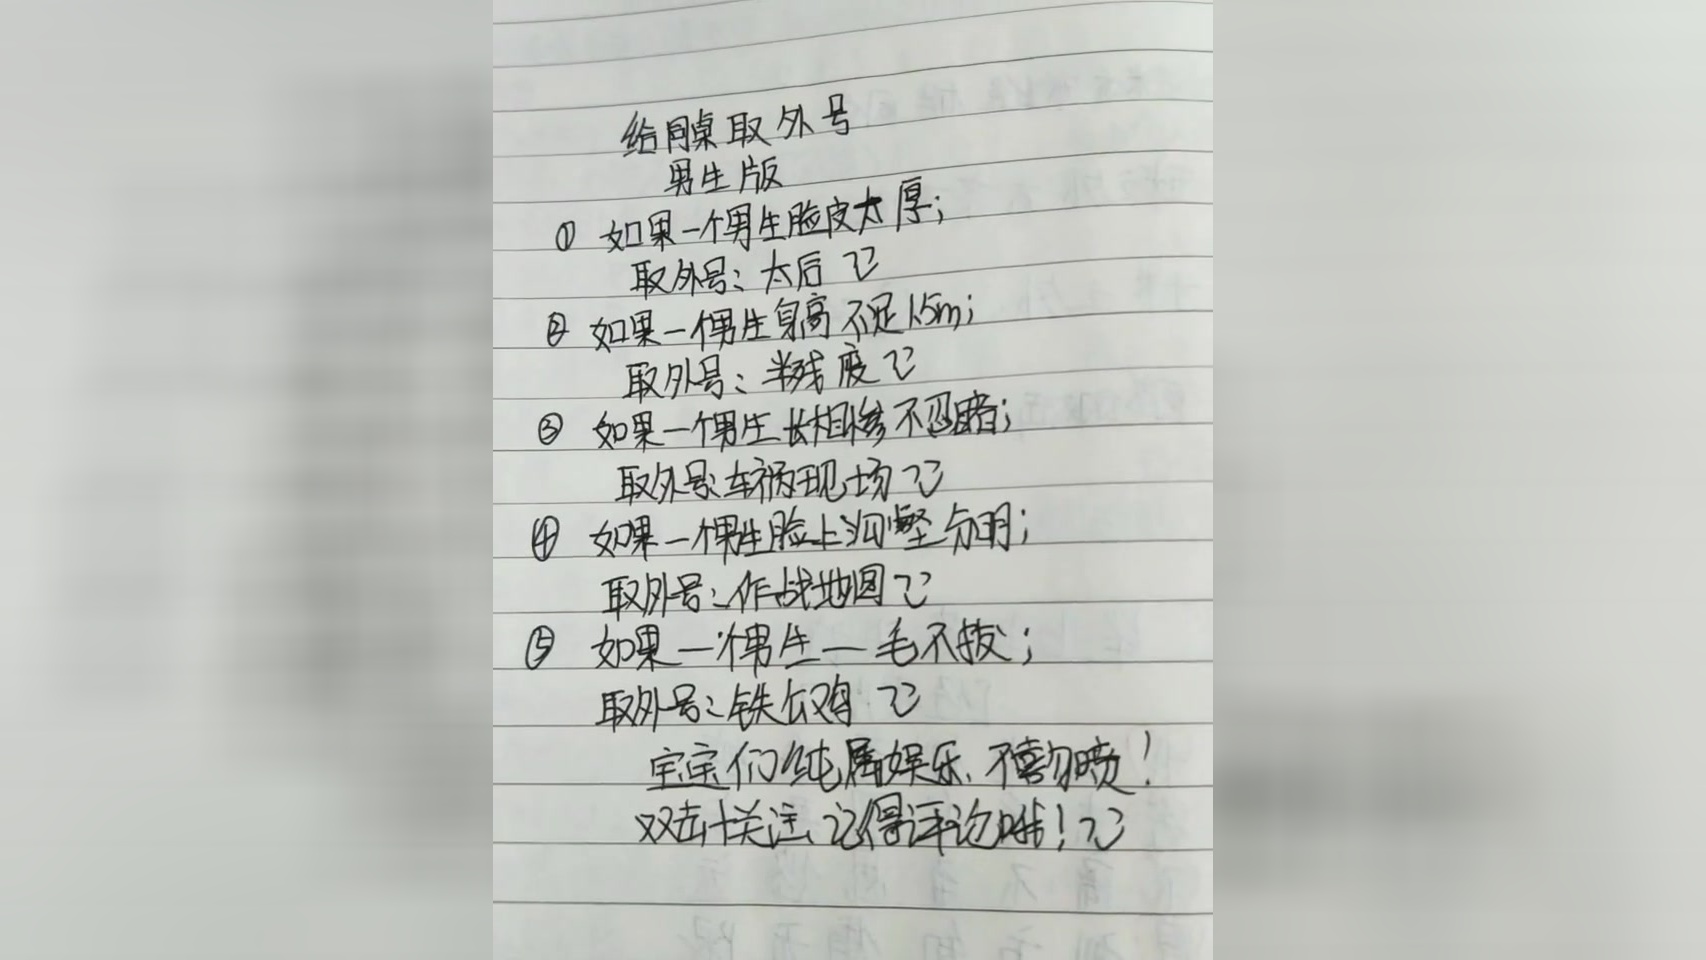 给同桌取外号
男生版
① 如果一个男生脸皮太厚;
取外号:太后
② 如果一个男生身高不足1.5m;
取外号:半残废
③ 如果一个男生长相惨不忍睹;
取外号:车祸现场
④ 如果一个男生脸上沟壑分明;
取外号:作战地图
⑤ 如果一个男生一毛不拔;
取外号:铁公鸡
宝宝们纯属娱乐、不喜勿喷!
双击+关注、记得评论哦!